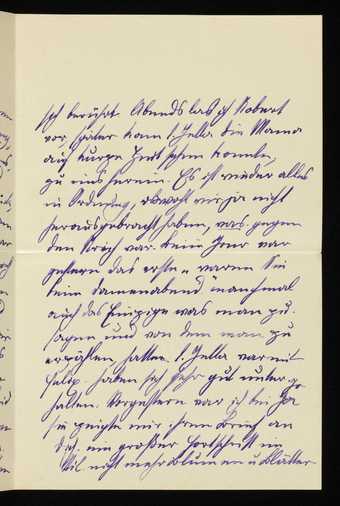 sich berührt. Abends las ich Robert
vor, später kam l. Jella die Mama
auf kurze Zeit sehen konnte,
zu uns herein. Es ist wieder alles
in Ordnung, obwohl wir ja nicht
herausgebracht haben, was gegen
den Strich war. Beim Jour war
gestern das erste u waren Sie
beim Damenabend manchmal
auch das Einzige was man zu
sagen und von dem man zu
erzählen hatten. l. Jella war mit
Felix haben sich sehr gut unter-
halten. Vorgestern war ich bei
sie zeigte mir ihren Brief an
Dich. ein großer Fortschritt im
Stil nicht mehr Blumen u Blätter